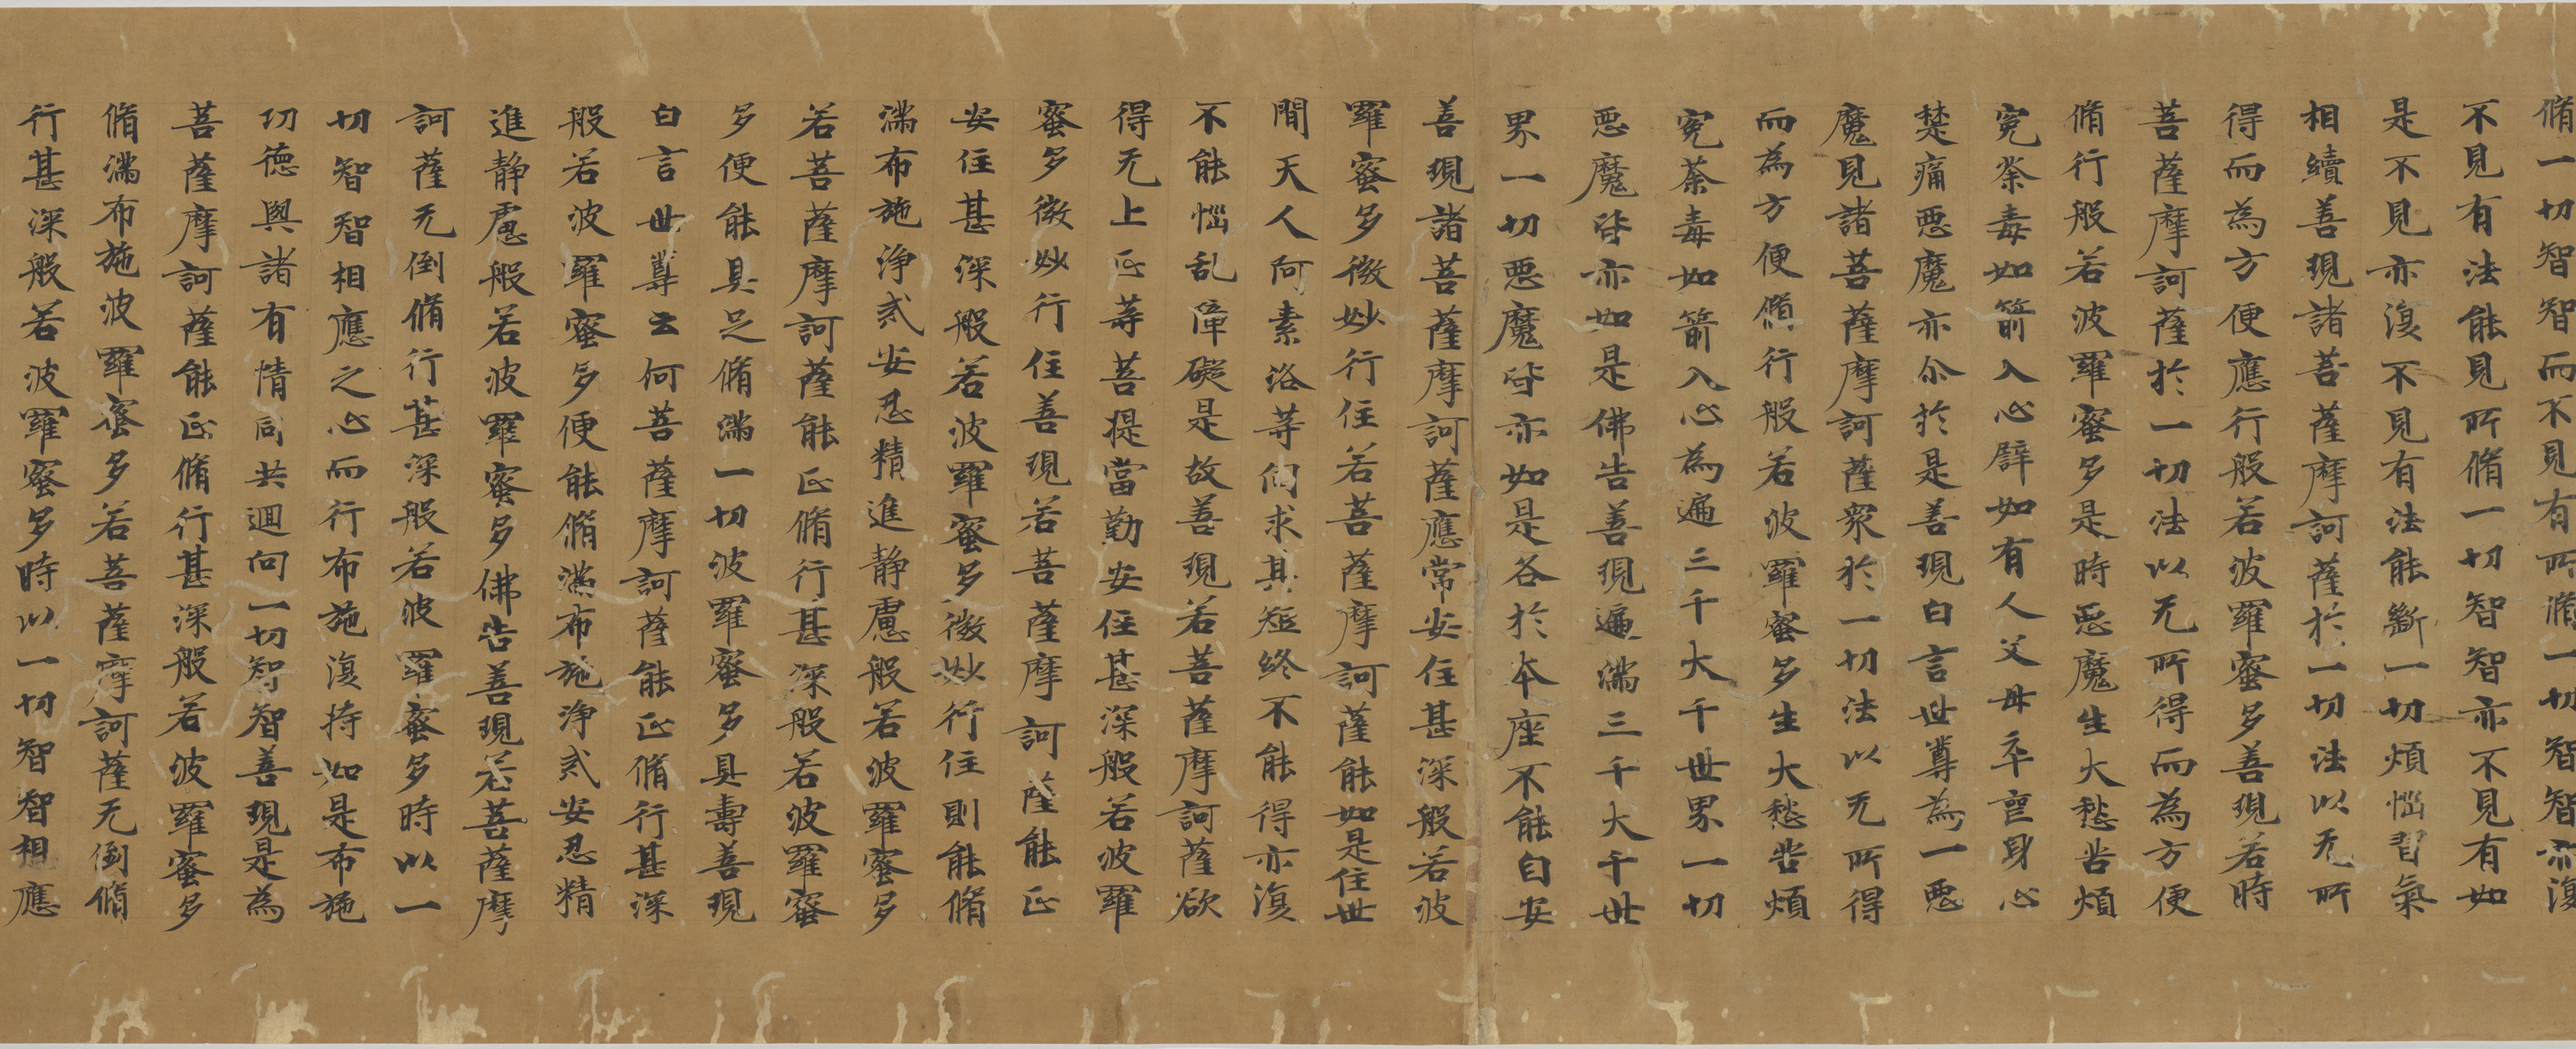 脩一切智智而不見有所脩一切智智亦復
不見有法能見所脩一切智智亦不見有如
是不見亦復不見有法能斷一切煩惱習氣
相續善現諸菩薩摩訶薩於一切法以无所
得而為方便應行般若波羅蜜多善現若時
菩薩摩訶薩於一切法以无所得而為方便
脩行般若波羅蜜多是時惡魔生大愁苦煩
寃荼毒如箭入心譬如有人父母卒喪身心
楚痛惡魔亦尒於是善現白言世尊為一惡
魔見諸菩薩摩訶薩眾於一切法以无所得
而為方便脩行般若波羅蜜多生大愁苦煩
寃荼毒如箭入心為遍三千大千世界一切
惡魔皆亦如是佛告善現遍滿三千大千世
界一切惡魔皆亦如是各於本座不能自安
善現諸菩薩摩訶薩應常安住甚深般若波
羅蜜多微妙行住若菩薩摩訶薩能如是住世
間天人阿素洛等伺求其短終不能得亦復
不能惱乱障礙是故善現若菩薩摩訶薩欲
得无上正等菩提當勤安住甚深般若波羅
蜜多微妙行住善現若菩薩摩訶薩能正
安住甚深般若波羅蜜多微妙行住則能脩
滿布施淨貳安忍精進靜慮般若波羅蜜多
若菩薩摩訶薩能正脩行甚深般若波羅蜜
多便能具足脩滿一切波羅蜜多具壽善現
白言世尊云何菩薩摩訶薩能正脩行甚深
般若波羅蜜多便能脩滿布施淨貳安忍精
進靜慮般若波羅蜜多佛告善現若菩薩摩
訶薩无倒脩行甚深般若波羅蜜多時以一
切智智相應之心而行布施復持如是布施
功德與諸有情同共迴向一切智智善現是為
菩薩摩訶薩能正脩行甚深般若波羅蜜多
脩滿布施波羅蜜多若菩薩摩訶薩无倒脩
行甚深般若波羅蜜多時以一切智智相應